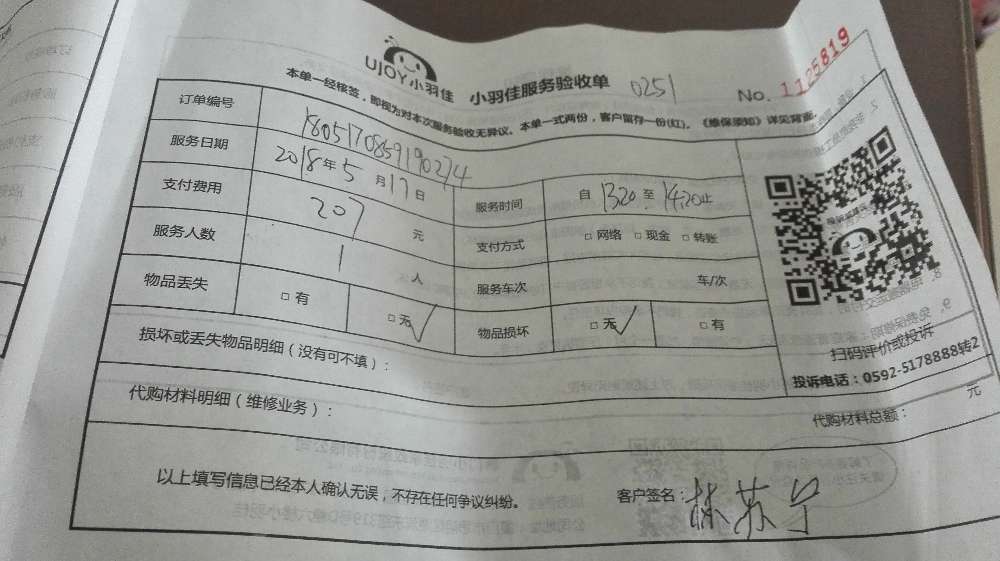 UJOY小羽佳 小羽佳服务验收单 0251 No. 1125819
本单一经核签，即视为对本次服务验收无异议。本单一式两份，客户留存一份(红)。《维保须知》详见背面。
订单编号 1805170859190274
服务日期 2018年5月17日 服务时间 自1320至1420止
支付费用 207元 支付方式 □网络 □现金 □转账
服务人数 1人 服务车次 车/次
物品丢失 □有 □无✓ 物品损坏 □无✓ □有
扫码评价或投诉
投诉电话：0592-5178888转2
损坏或丢失物品明细（没有可不填）：
代购材料明细（维修业务）： 代购材料总额： 元
以上填写信息已经本人确认无误，不存在任何争议纠纷。 客户签名：林苏宁